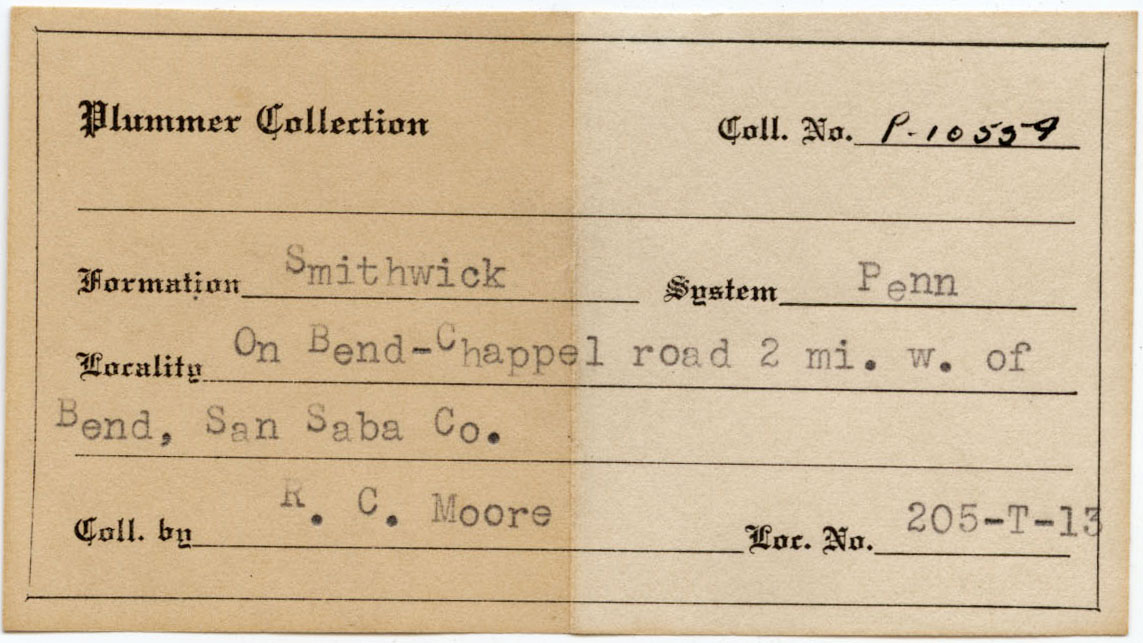 Plummer Collection Coll. No. P-10559
Formation Smithwick System Penn
Locality On Bend-Chappel road 2 mi. w. of
Bend, San Saba Co.
Coll. by R. C. Moore Loc. No. 205-T-13